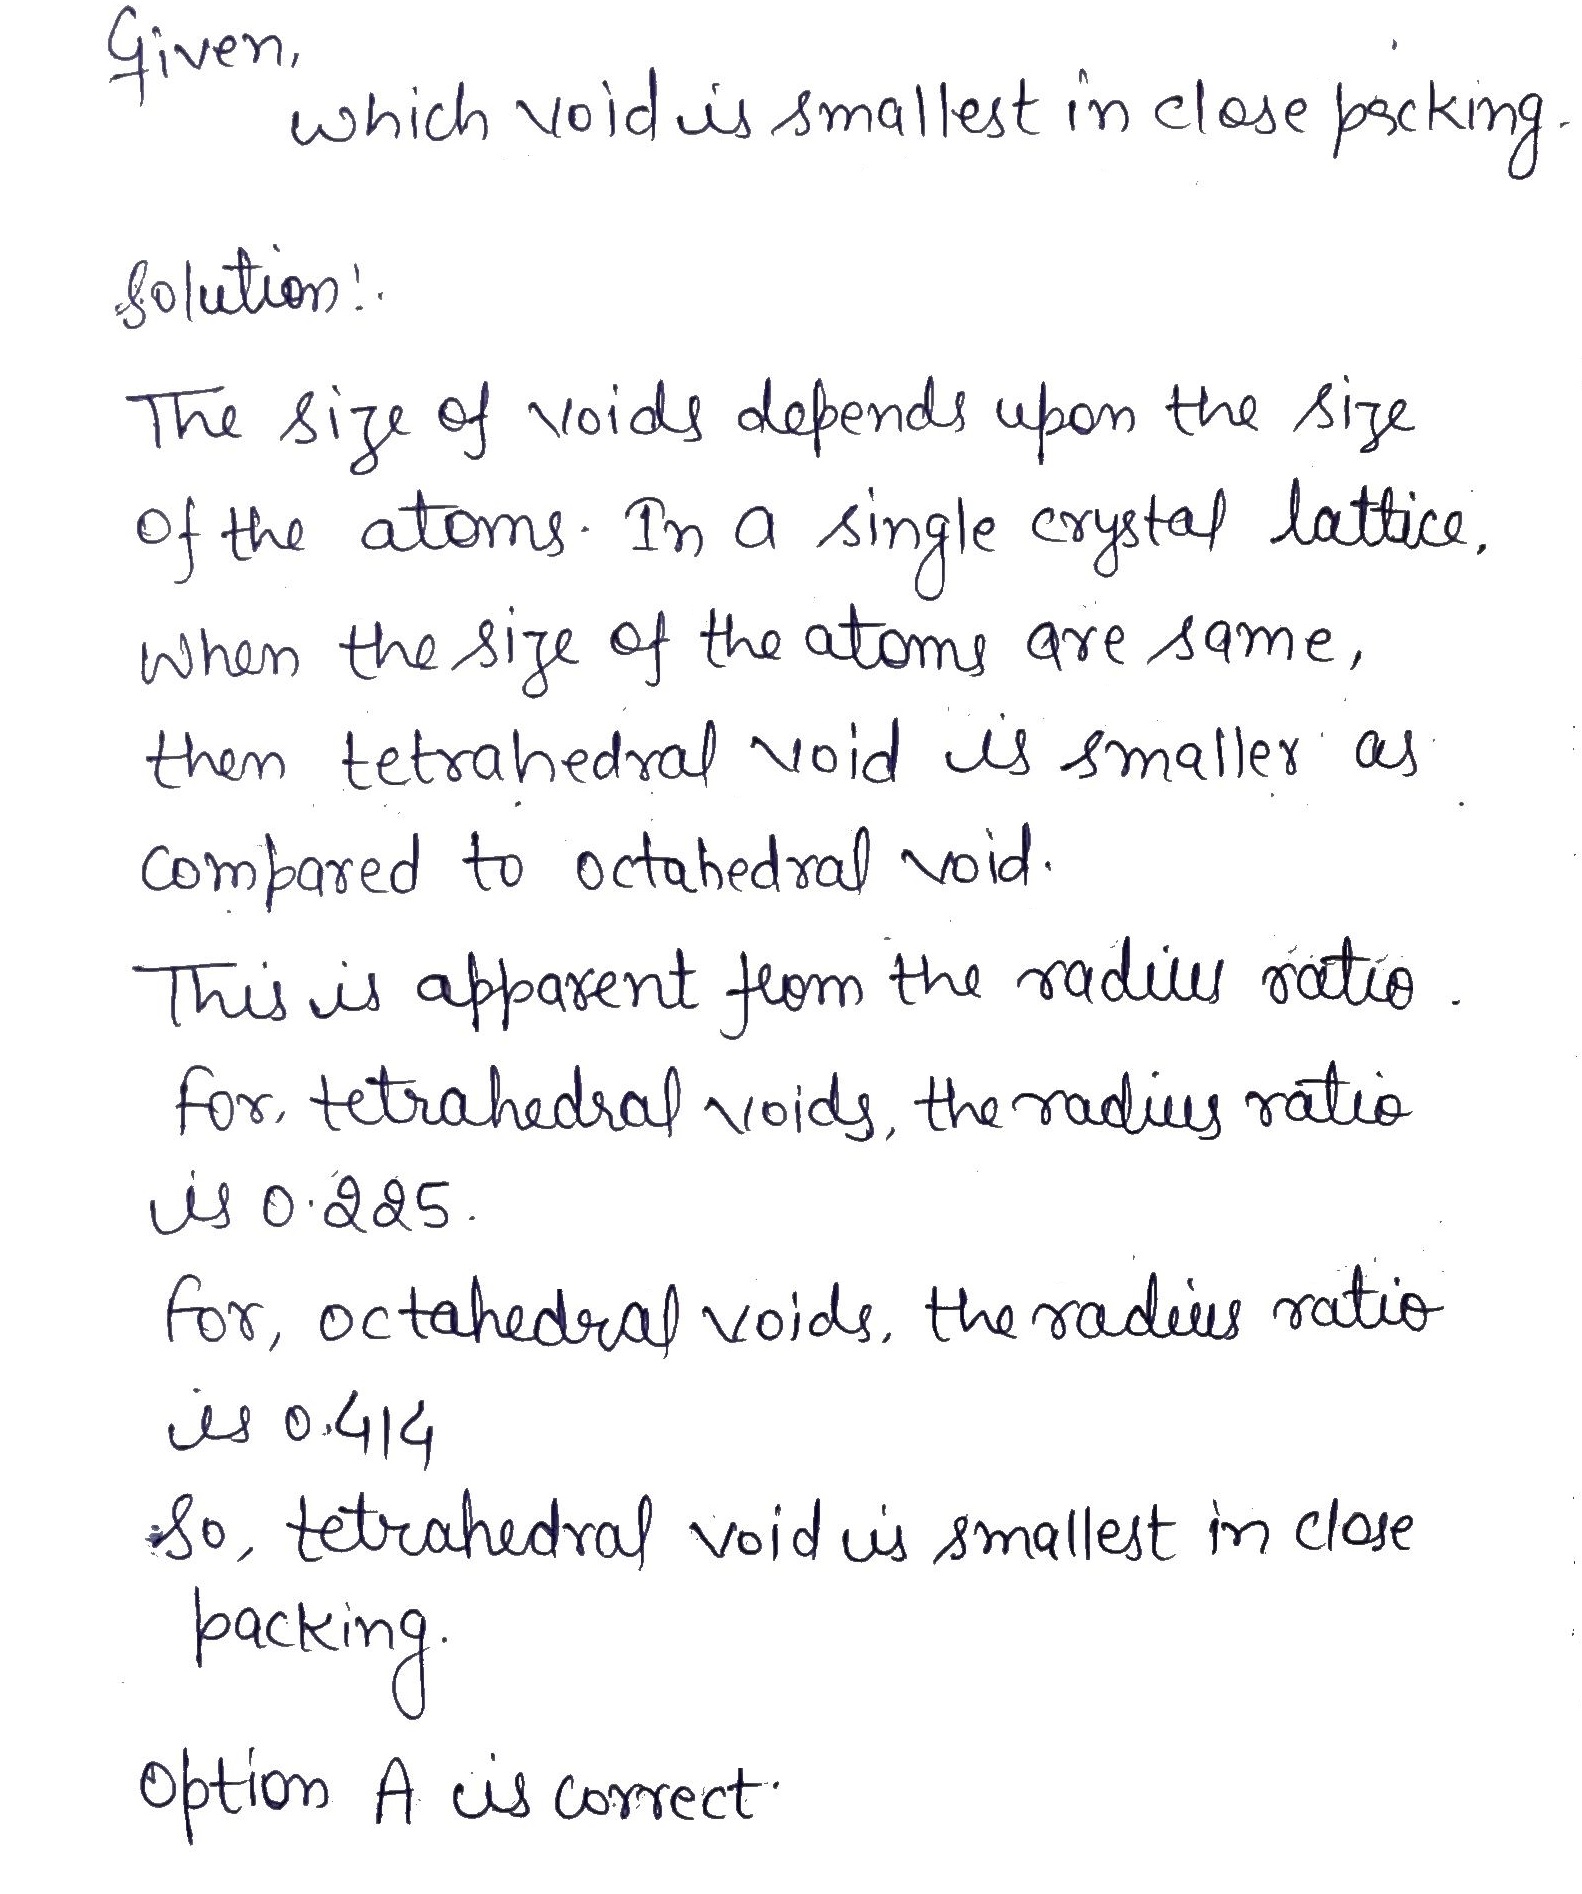 Given,
which void is smallest in close packing.
Solution:.
The size of voids depends upon the size
of the atoms. In a single crystal lattice,
when the size of the atoms are same,
then tetrahedral void is smaller as
compared to octahedral void.
This is apparent from the radius ratio.
for, tetrahedral voids, the radius ratio
is 0.225.
for, octahedral voids, the radius ratio
is 0.414
So, tetrahedral void is smallest in close
packing.
Option A is correct.